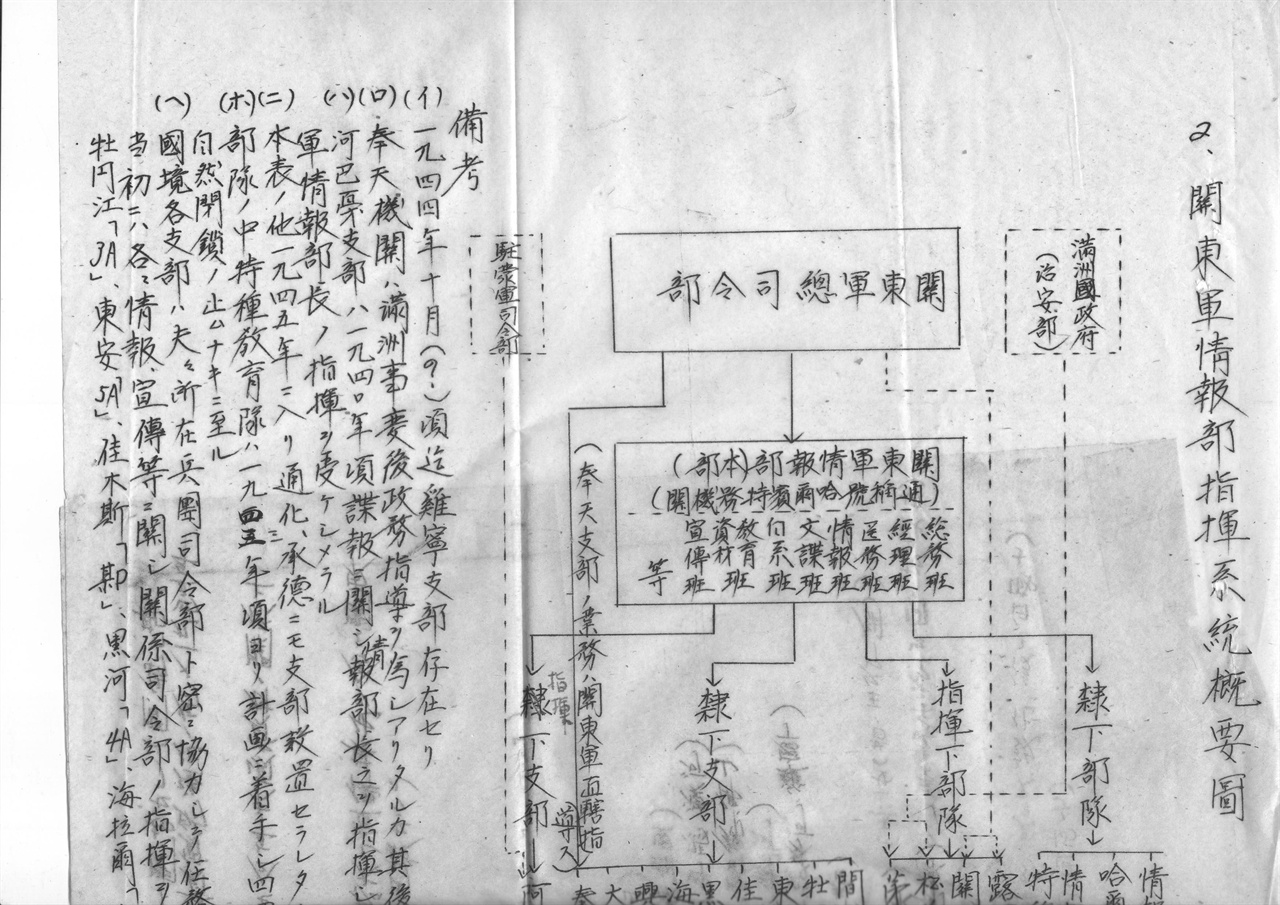 2、關東軍情報部指揮系統概要圖
滿洲國政府
(治安部)
關東軍總司令部
駐蒙軍司令部
關東軍情報部(本部)
(通稱號哈爾濱特務機關)
總務班
經理班
医務班
情報班
文諜班
白系班
教育班
資材班
宣傳班
等
(奉天支部ノ業務ハ關東軍直轄指
導ス)
隷下部隊
指揮下部隊
隷下支部
指揮
隷下支部
情
哈爾
情
特
露
關
第
間
牡
東
佳
黒
海
興
大
奉
河
備考
(イ)一九四四年十月(9.)頃迄雞寧支部存在セリ
(ロ)奉天機關ハ滿洲事変後政務指導ヲ為シアリタルカ其後
(ハ)河巴戛支部ハ一九四〇年頃諜報ニ關シ情報部長之ヲ指揮シ
軍情報部長ノ指揮ヲ受ケシメラル
(ニ)本表ノ他一九四五年ニ入リ通化、承德ニモ支部設置セラレタ
(ホ)部隊ノ中特種教育隊ハ一九四三年頃ヨリ計画ニ着手シ四
自然閉鎖ノ止ムナキニ至ル
(ヘ)國境各支部ハ夫々所在兵團司令部ト密ニ協力シテ任務
当初ニハ各々情報、宣傳等ニ關シ關係司令部ノ指揮ヲ
牡丹江「3A」、東安「5A」、佳木斯「 D」、黒河「4A」、海拉爾「